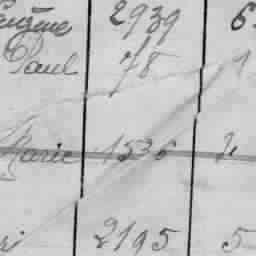 Eugène 2939 6
Paul 78 1
Marie 1536
2195 5